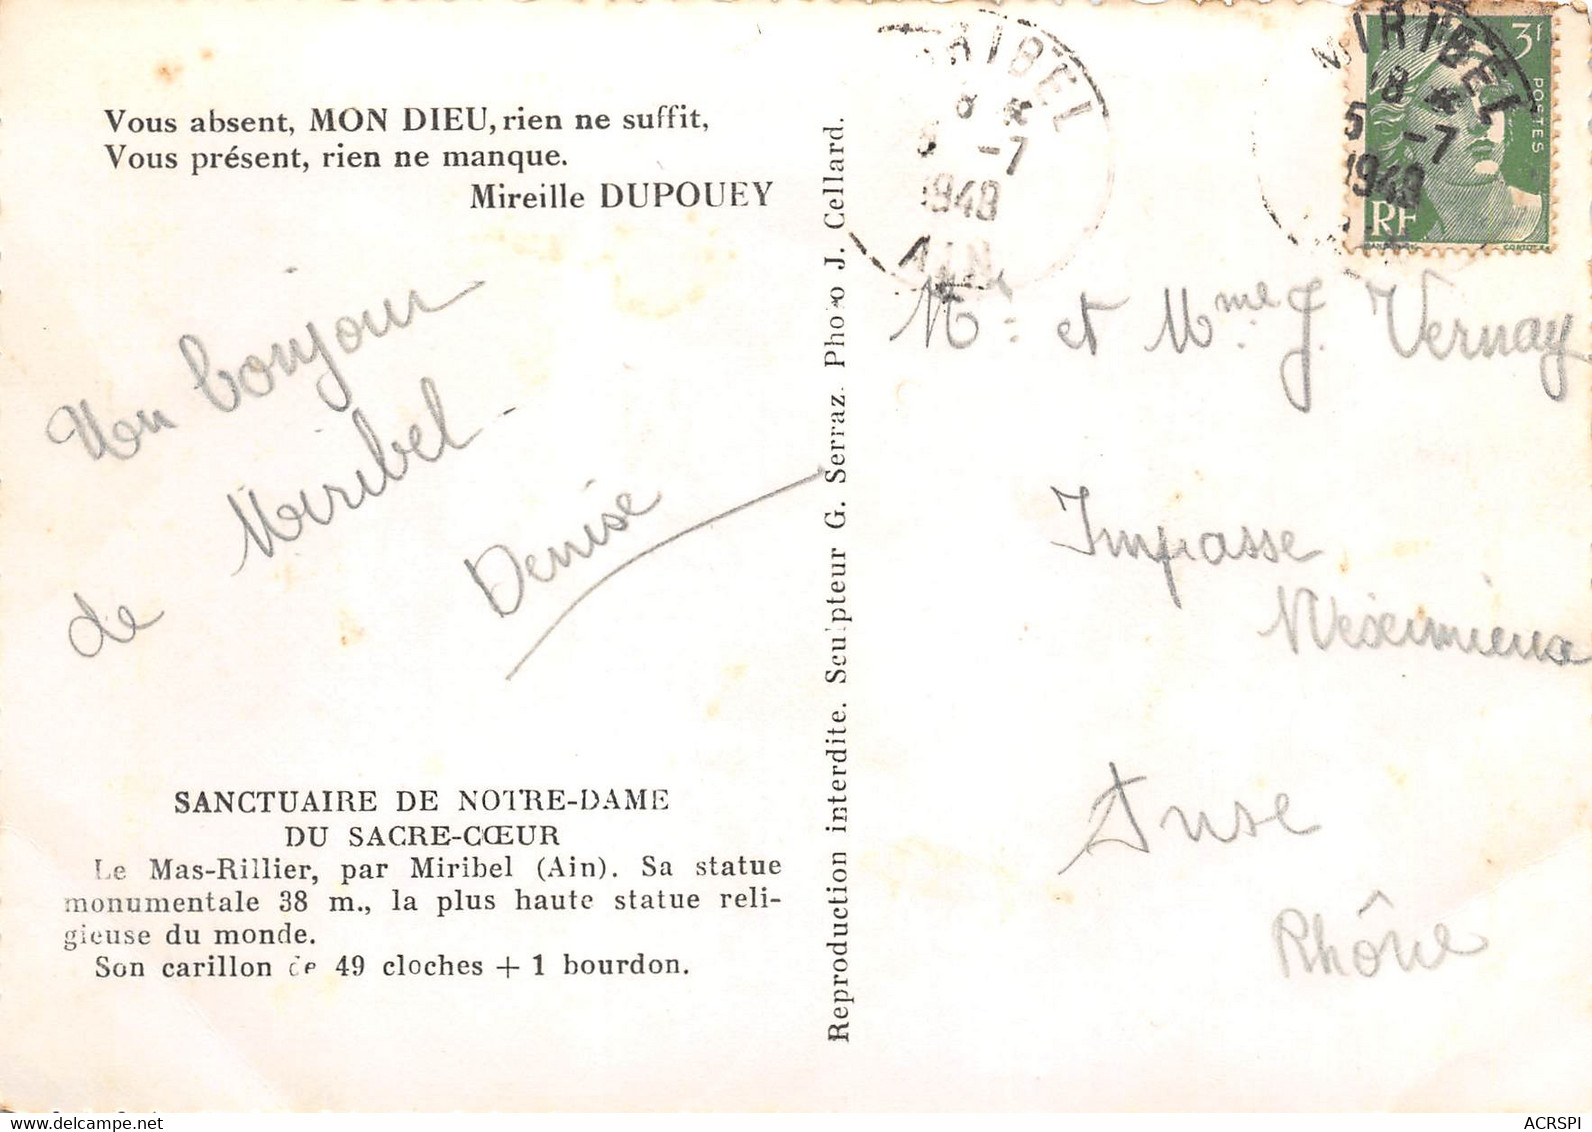 Vous absent, MON DIEU, rien ne suffit,
Vous présent, rien ne manque.
Mireille DUPOUEY
Un bonjour
de Miribel
Denise
SANCTUAIRE DE NOTRE-DAME
DU SACRE-CŒUR
Le Mas-Rillier, par Miribel (Ain). Sa statue
monumentale 38 m., la plus haute statue reli-
gieuse du monde.
Son carillon de 49 cloches + 1 bourdon.
Reproduction interdite. Sculpteur G. Serraz. Photo J. Cellard.
MIRIBEL
18 *
5 -7
1948
AIN
MIRIBEL
18 *
5 -7
1948
3f
POSTES
RF
M. et Mme J. Vernay
Impasse
Meximieux
Anse
Rhône
ACRSPI